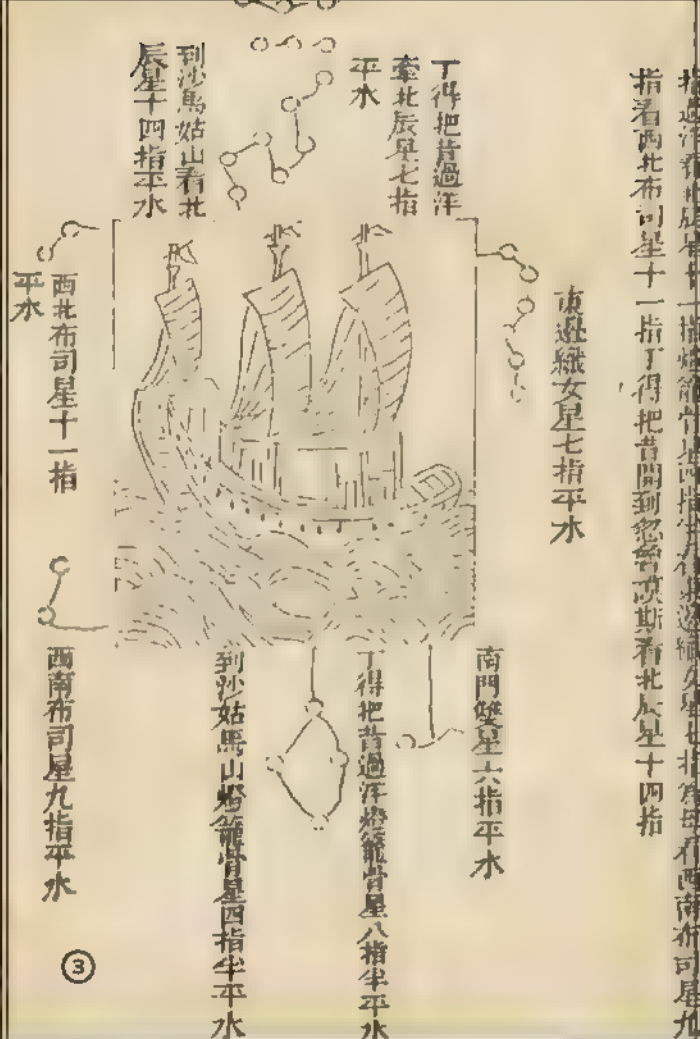 指過洋看北辰星十一指燈籠骨星四指半看東邊織女星七指為母看西南布司星九
指看西北布司星十一指丁得把昔開到忽魯謨斯看北辰星十四指
東邊織女星七指平水
丁得把昔過洋
牽北辰星七指
平水
到沙馬姑山看北
辰星十四指平水
西北布司星十一指
平水
南門雙星六指平水
丁得把昔過洋燈籠骨星八指半平水
到沙姑馬山燈籠骨星四指半平水
西南布司星九指平水
③